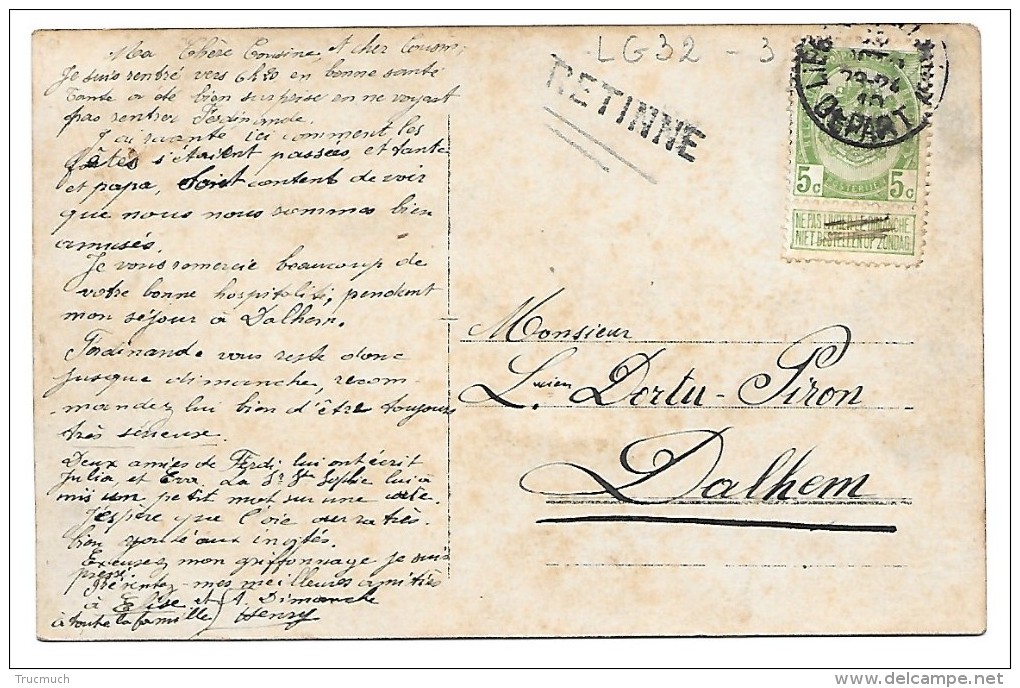 Ma Chère Cousine, et cher Cousin,
Je suis rentré vers 6h20 en bonne santé
Tante a été bien surprise en ne voyant
pas rentrer Ferdinande.
J'ai raconté ici comment les
fêtes s'étaient passées, et tante
et papa, sont content de voir
que nous nous sommes bien
amusés.
Je vous remercie beaucoup de
votre bonne hospitalité, pendent
mon séjour à Dalhem.
Ferdinande vous reste donc
jusque dimanche, recom-
mandez lui bien d'être toujours
très sérieuse.
Deux amies de Ferdi lui ont écrit
Julia, et Eva. La Sr Ste Sophie lui a
mis un petit mot sur une carte.
J'espère que l'oie aura très
bien goûté aux invités.
Excusez mon griffonnage je suis
pressé
Présentez-mes meilleures amitiés
à Elise, et A Dimanche
à toute la famille Henry
LG32 - 3
RETINNE
LIEG
DEPART
5c 5c
NE PAS LIVRER LE DIMANCHE
NIET BESTELLEN OP ZONDAG
Monsieur
Lucien Dortu-Piron
Dalhem
Trucmuch
delcampe.net